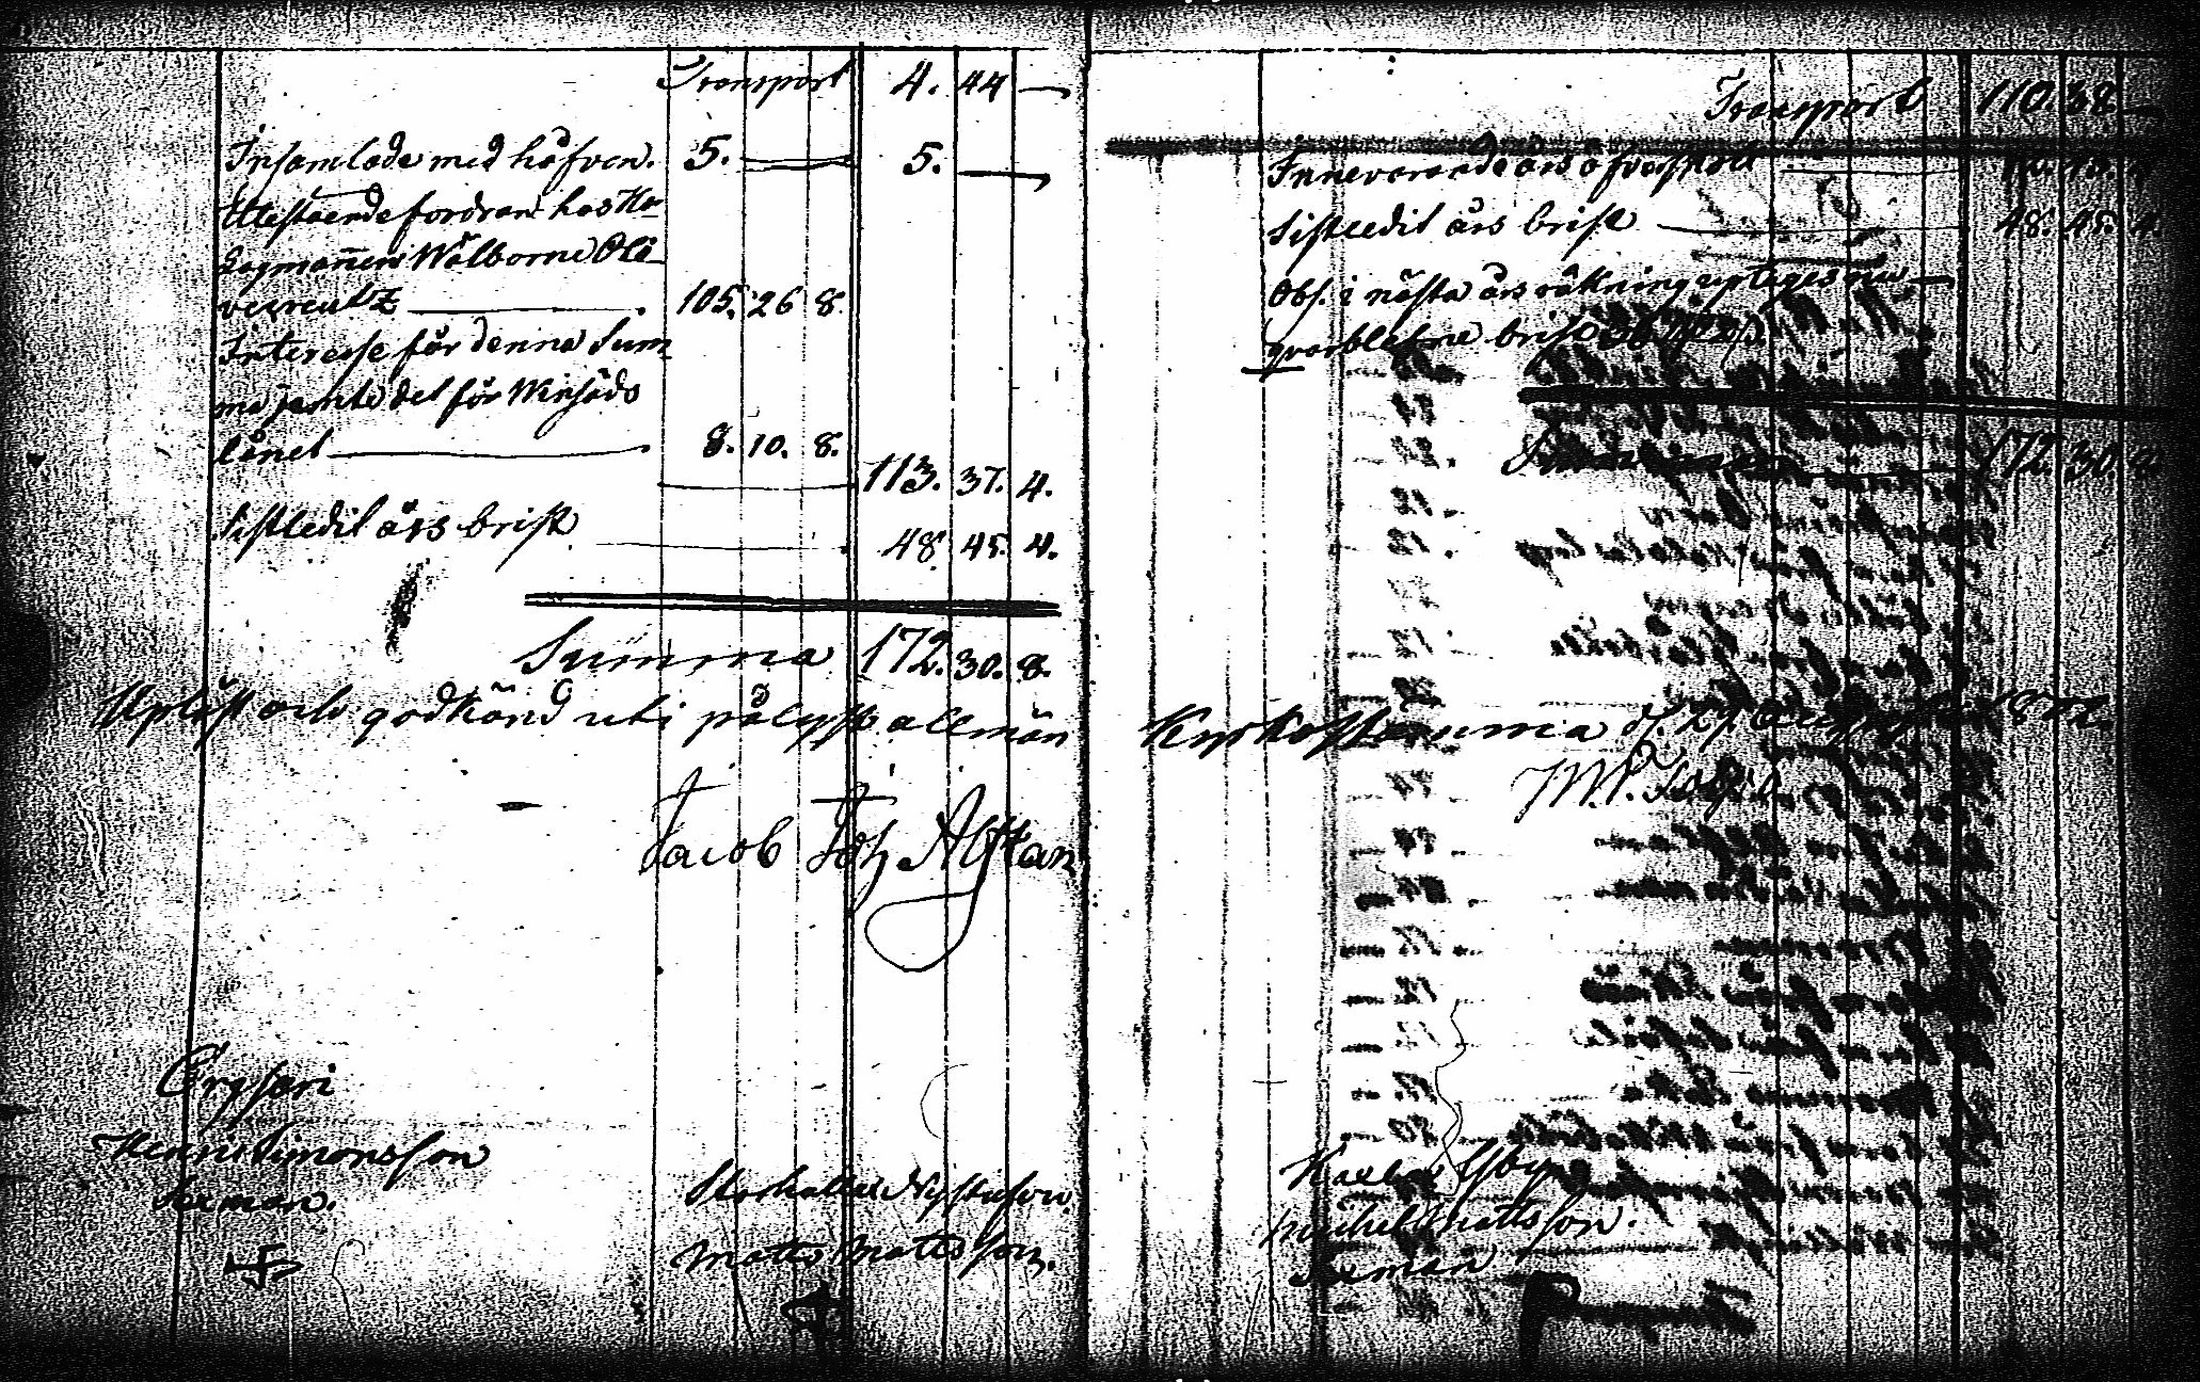 Transport 4. 44 —
Insamlade med håfven. 5. — 5. —
Utestående fordran hos Hr
Lagmannen Wälborne Oli
vecreutz — 105. 26 8.
Interesse för denna Sum
ma jemte det för Winsäds
lånet — 8. 10. 8.
113. 37. 4.
Sistledit års brist — 48. 45. 4.
Summa 172. 30. 8.
Upläst och godkänd uti pålyst allmän
Jacob Joh Alftan
Henric Simonsson
Sexman.
Matts Mattsson.
Transport 110. 38 —
Innevarande års öfverskott
Sistledit års brist — 48. 45. 4.
Obs. i nästa års räkning uptages
qvarblefne brist
172. 30. 8.
Kyrkostämma d. 27 Augusti
Michel Mattsson.
Sexman